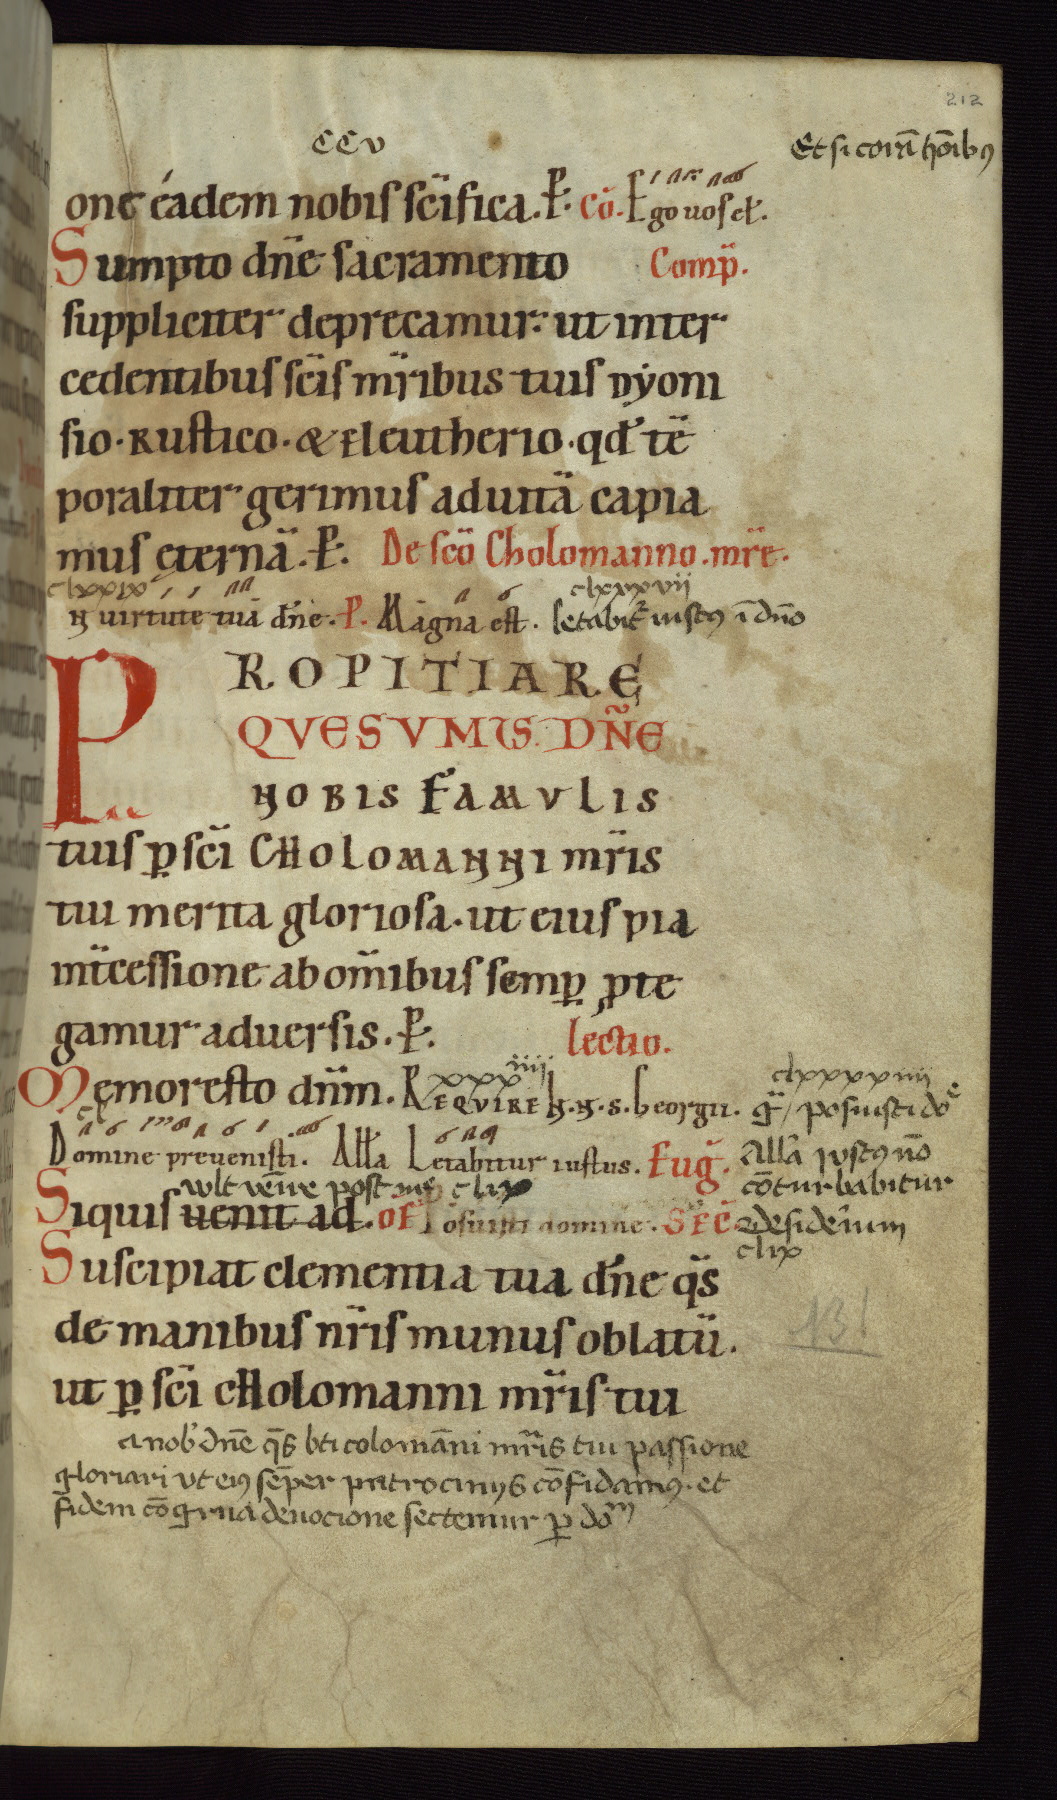 212
ccv
Et si corā hoībꝯ
one éadem nobis sc̄ifica. P̄. Cō. Ego uos el̄.
Sumpto dn̄e sacramento Comp̄.
suppliciter deprecamur: ut inter
cedentibus sc̄is mr̄ibus tuis dẏoni
sio. Rustico. & Eleutherio. qd̄ tē
poraliter gerimus ad uitā capia
mus ęternā. P̄. De sc̄o Cholomanno. mr̄e.
clxxix clxxxvii
N uirtute tua dn̄e. P. Magna est. letabit᷑ iustꝯ ī dn̄o
PROPITIARE
QVESVMVS. DÑE
NOBIS FAMVLIS
tuis ꝑ sc̄i CHOLOMANNI mr̄is
tui merita gloriosa. ut eius pia
int̄cessione ab om̄ibus semꝑ ꝓte
gamur aduersis. P̄. lectio.
Memor esto dn̄m. REQVIRE xxxiiii. IN. N. S. Georgii.
clxxxxiiii
ḡ posuisti dōe
Domine preuenisti. All̄a Letabitur iustus. Eug̃. Allā iustꝯ nō
wlt uenire post me clix cōturbabitur
Siquis uenit ad. OF Posuisti domine. SEC̄. desiderium
clix
Suscipiat clementia tua dn̄e qs̄
de manibus nr̄is munus oblatū.
131
ut ꝑ sc̄i CHolomanni mr̄is tui
a nob̄ dn̄e q̄s bt̄i colomāni mr̄is tui passione
gloriari vt eiꝯ sēper patrociniis cōfidamꝯ. et
fidem cōgrua deuocione sectemur ꝑ dōm